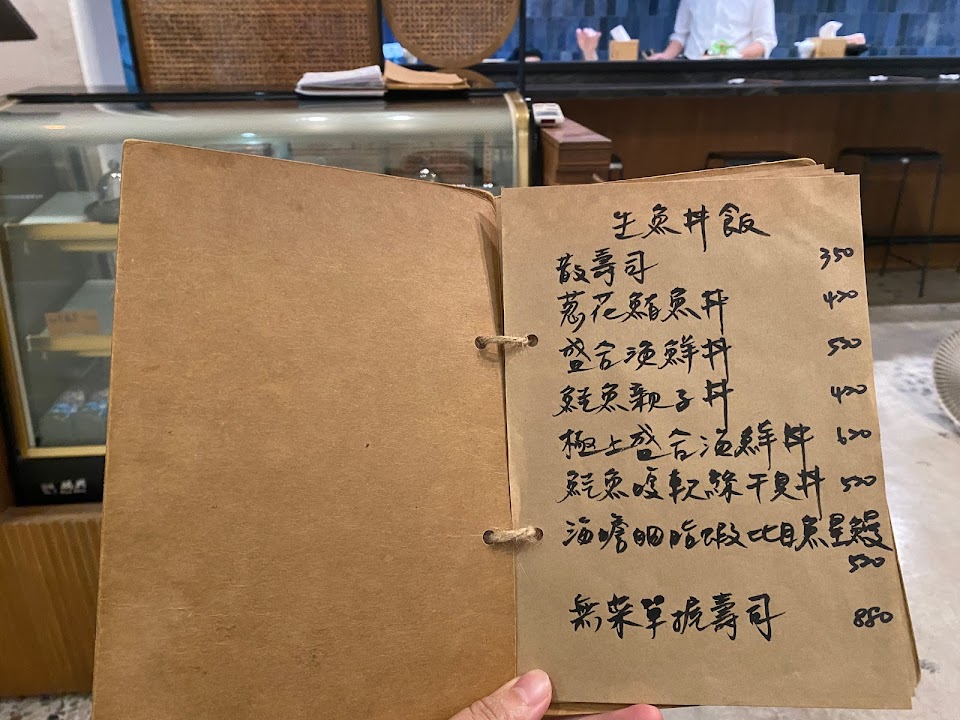 生魚丼飯
散壽司 350
蔥花鮪魚丼 420
盛合海鮮丼 520
鮭魚親子丼 420
極上盛合海鮮丼 620
鮭魚 軟絲干貝丼 520
海膽胭脂蝦比目魚星鰻
520
無菜單 壽司 880